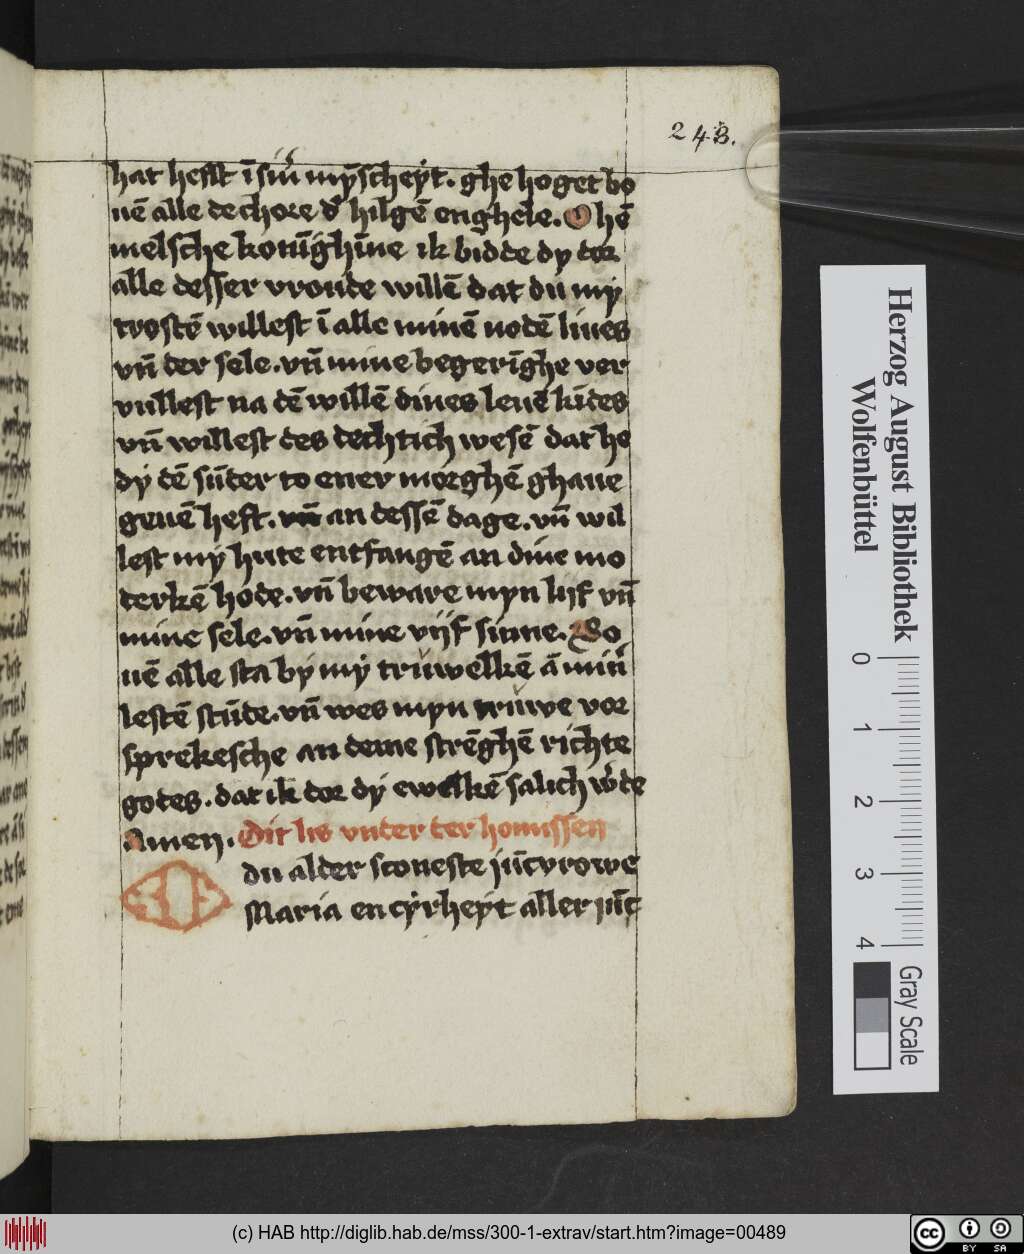 243.
hat hefft ī sīn᷑ mӯscheyt. ghe hoget bo
uē alle de chore d᷑ hilgē enghele. O hē
melsche konīghīne ik bidde dy dor
alle desser vroude willē dat du my
trostē willest ī alle minē nodē liues
vn̄ der sele. vn̄ mine begerīghe ver
vullest na dē willē dines leuē kīdes
vn̄ willest des dechtich wesē dat he
dy dē sūder to ener morghē ghaue
geuē heft. vn̄ an dessē dage. vn̄ wil
lest my hute entfangē an dine mo
derkē hode. vn̄ beware myn lijf vn̄
mine sele. vn̄ mine vijf sinne. Bo
uē alle sta by my truwelkē ā min᷑
lestē stūde. vn̄ wes myn truwe vor
sprekesche an deme strēghē richte
godes. dat ik dor dy ewelkē salich w᷑de
Amen. Dit lis vnder der homissen
O du alder sconeste jūcvrowe
Maria en cyrheyt aller jūc
Herzog August Bibliothek
Wolfenbüttel
0 1 2 3 4
Gray Scale
(c) HAB http://diglib.hab.de/mss/300-1-extrav/start.htm?image=00489
cc BY SA